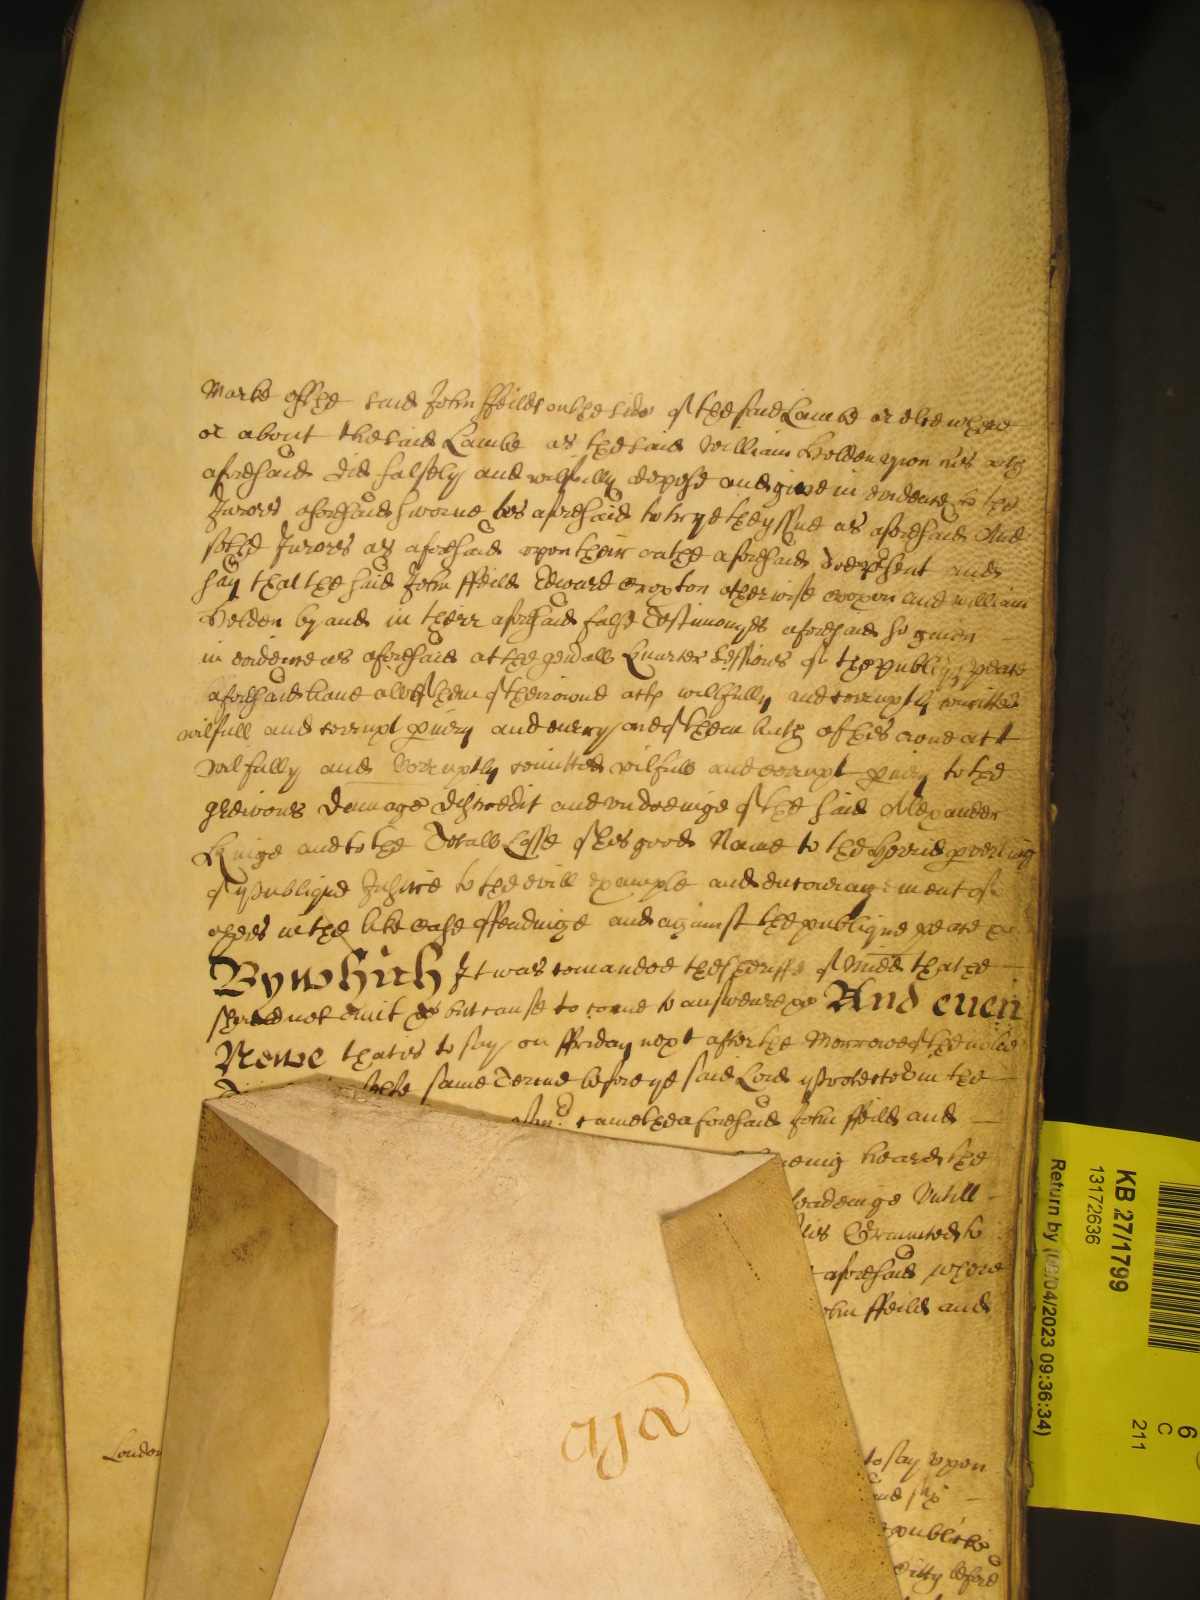 Marke of the said John ffeild on the side of the said Lambe or elsewhere
or about the said Lambe as the said William Holden upon his oath
aforesaid did falsely and wilfully depose and give in evidence to the
Jurors aforesaid sworne as aforesaid to trye the yssue as aforesaid And
soe the Jurors as aforesaid upon their oathe aforesaid doe present and
say that the said John ffeild Edward Croxton otherwise and William
Holden by and in their aforesaid false Testimonyes aforesaid so given
in evidence as aforesaid at the gen'all Quarter Sessions of the publique peace
aforesaid have all of them of their owne acts willfully and corruptly comitted
wilfull and corrupt p'iury and every one of them by of his owne act
wilfully and Corruptly comitted wilfull and corrupt p'iury to the
greivous damage discredit and undoeinge of the said Alexander
Kinge and to the Totall Losse of his good Name to the
of publique Justice to the evill example and encouragement of
others in the like Case offendinge and against the publique peace &c
By which It was comanded the Sheriffe of Midd that he
should not omit &c but cause to come to answere &c And even
Nowe that is to say on ffriday next after the Morrowe of the
same Terme before ye said Lord Protector in the
came the aforesaid John ffeild and
heard the
untill
Comitted to
aforesaid where
John ffeild and
aja
London
to say upon
and six
publike
before
KB 27/1799
13172636
Return by (06/04/2023 09:36:34)
6
C
211